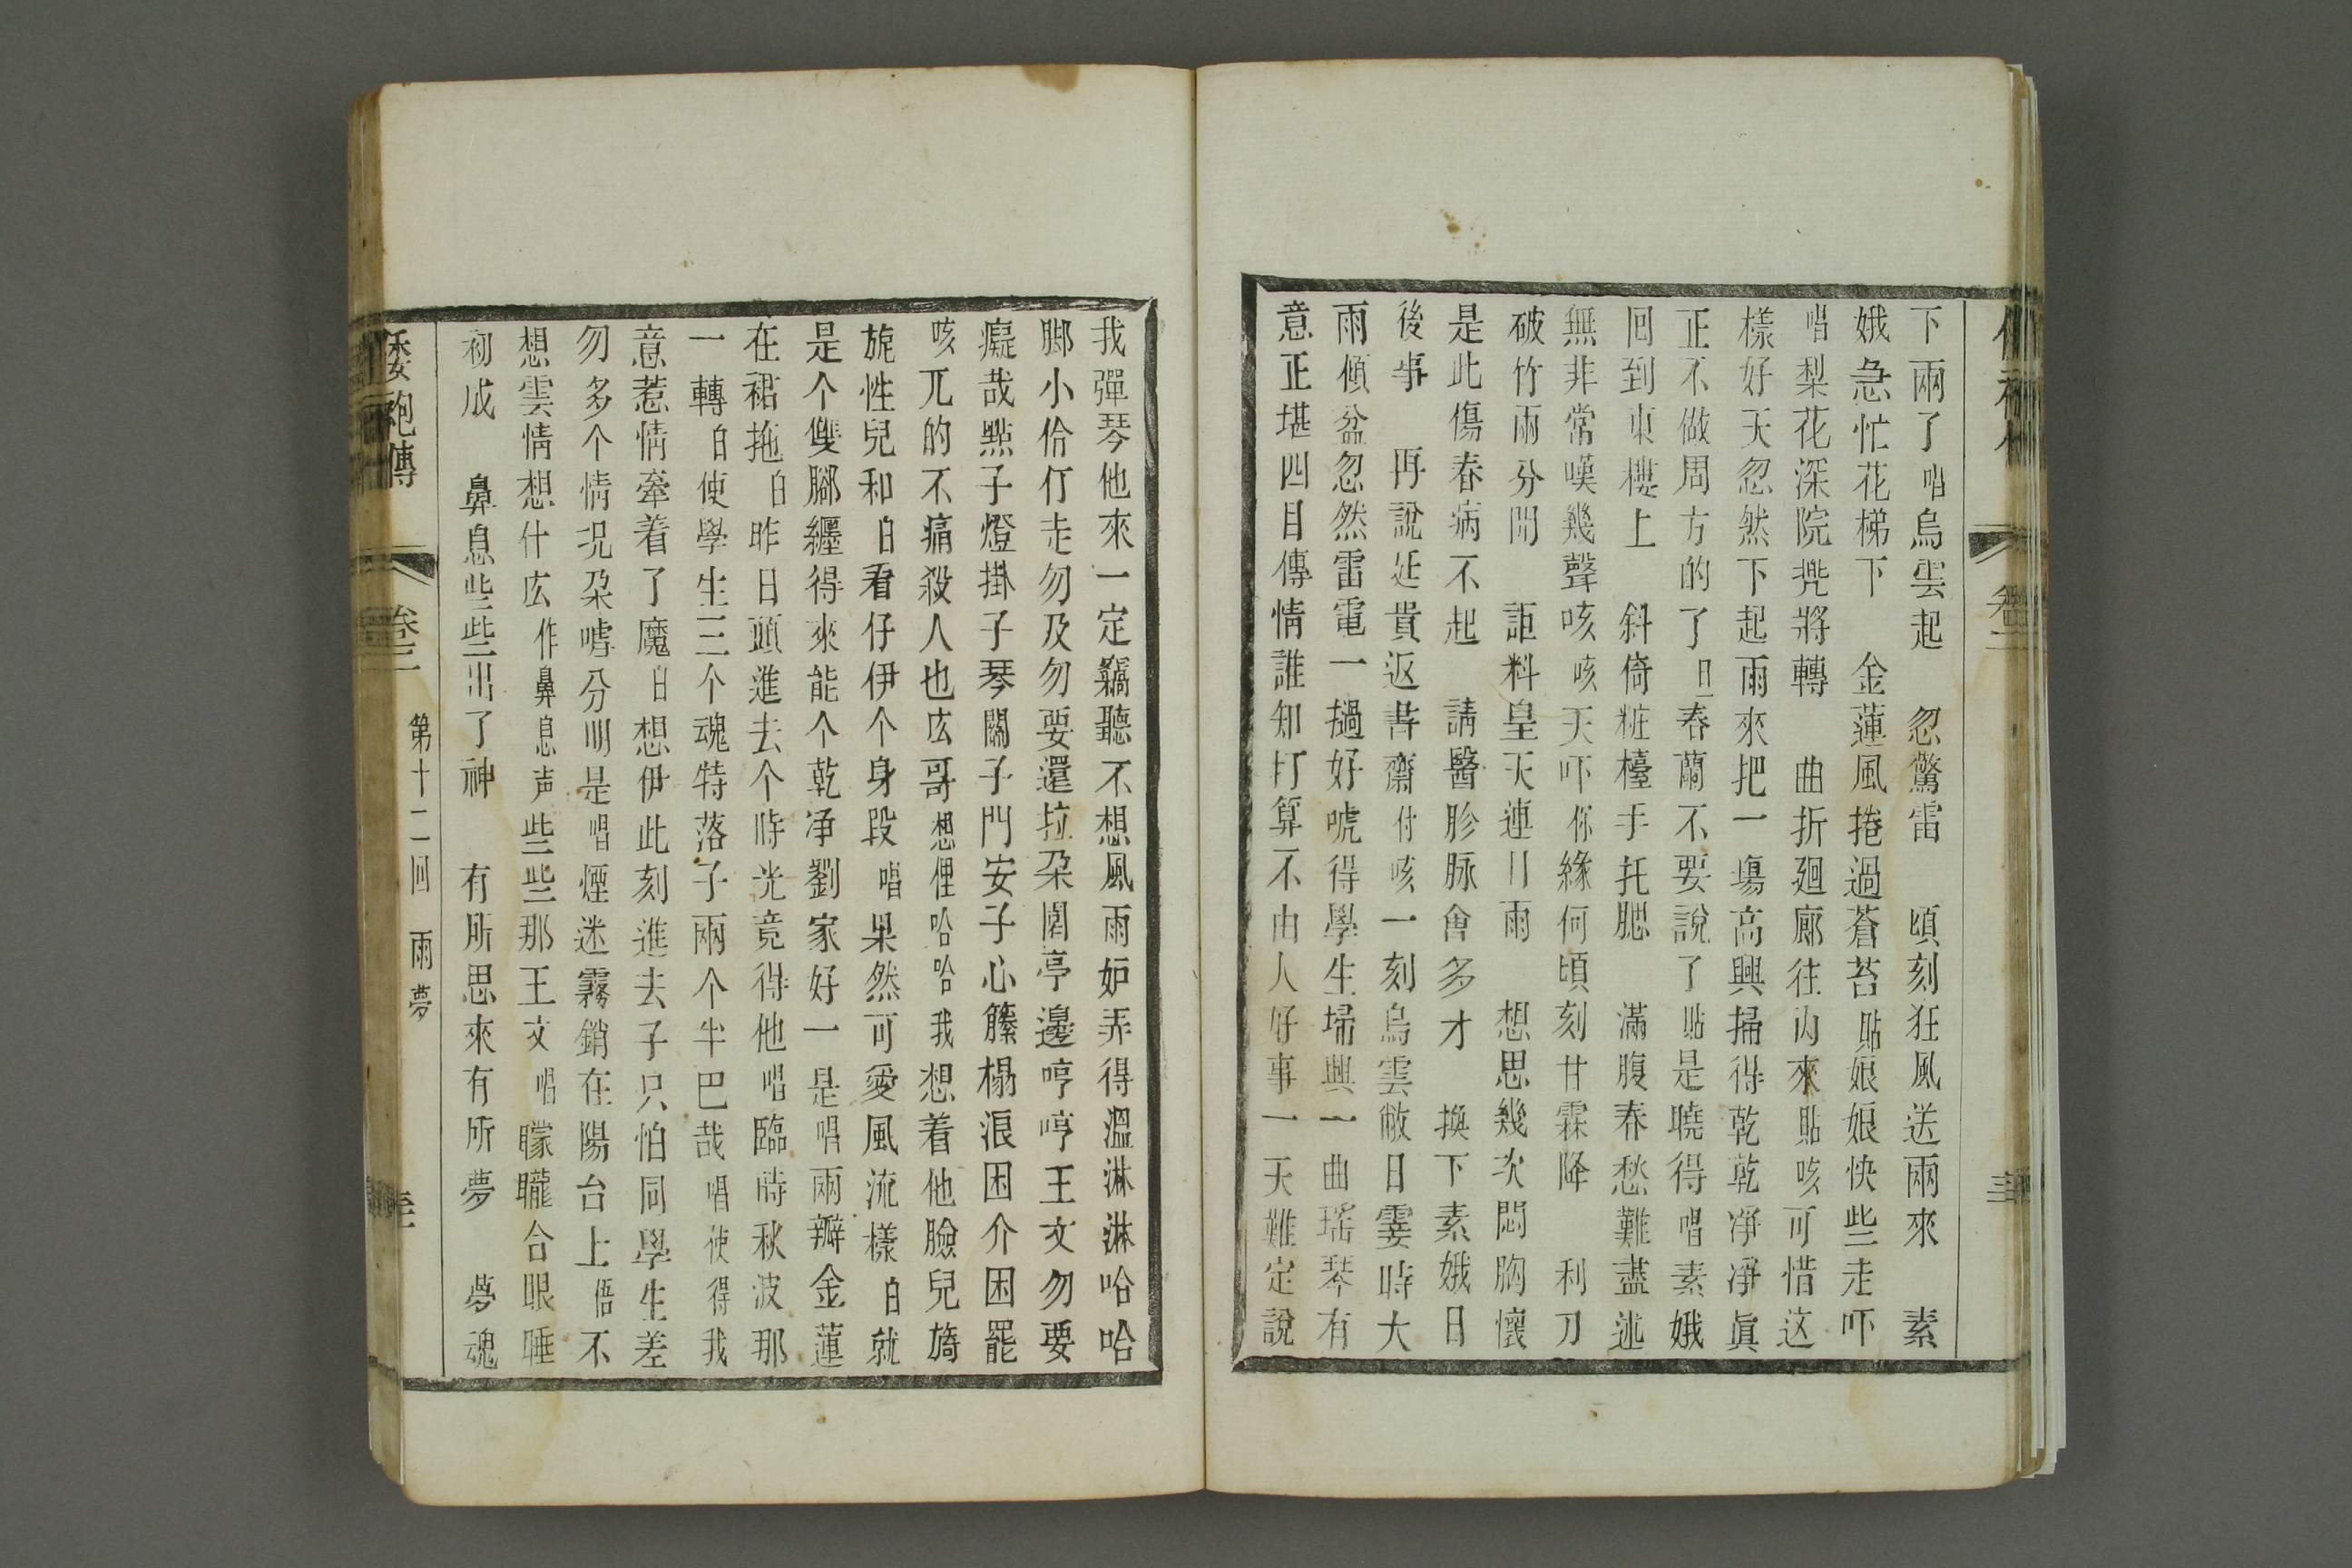 下雨了唱烏雲起　忽驚雷　頃刻狂風送雨來　素
娥急忙花梯下　金蓮風捲過蒼苔貼娘娘快些走吓
唱梨花深院兠將轉　曲折廻廊往内來貼咳可惜这
樣好天忽然下起雨來把一塲高興掃得乾乾淨淨眞
正不做周方的了旦春蘭不要說了貼是曉得唱素娥
回到東樓上　斜倚粧檯手托腮　滿腹春愁難盡述
無非常嘆幾聲咳咳天吓你緣何頃刻甘霖降　利刀
破竹兩分開　詎料皇天連日雨　想思幾次悶胸懷
是此傷春病不起　請醫胗脉會多才　換下素娥日
後事　再說延貴返書齋付咳一刻烏雲敝日霎時大
雨傾盆忽然雷電一撾好唬得學生埽興一曲瑤琴有
意正堪四目傳情誰知打算不由人好事一天難定說
我彈琴他來一定竊聽不想風雨妒弄得溫淋淋哈哈
脚小伶仃走勿及勿要還拉朶園亭邊哼哼王文勿要
癡哉點子燈掛子琴關子門安子心籐榻浪困介困罷
咳兀的不痛殺人也庅哥想俚哈哈我想着他臉兒旖
旎性兒和白看仔伊个身段唱果然可愛風流樣白就
是个雙脚纏得來能个乾净劉家好一是唱兩瓣金蓮
在裙拖白昨日頭進去个時光竟得他唱臨時秋波那
一轉白使學生三个魂特落子兩个半巴哉唱使得我
意惹情牽着了魔白想伊此刻進去子只怕同學生差
勿多个情况朶嘘分明是唱煙迷霧銷在陽台上悟不
想雲情想什庅作鼻息声些些那王文唱矇矓合眼睡
初成　鼻息些些出了神　有所思來有所夢　夢魂
倭袍傳　卷三　第十二回　雨夢